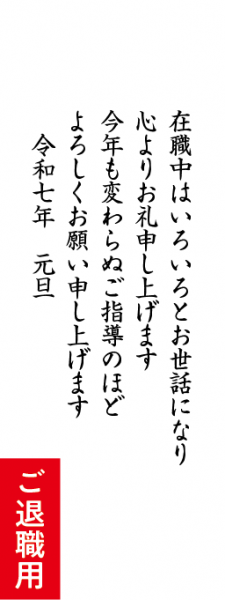 在職中はいろいろとお世話になり
心よりお礼申し上げます
今年も変わらぬご指導のほど
よろしくお願い申し上げます
令和七年　元旦
ご退職用